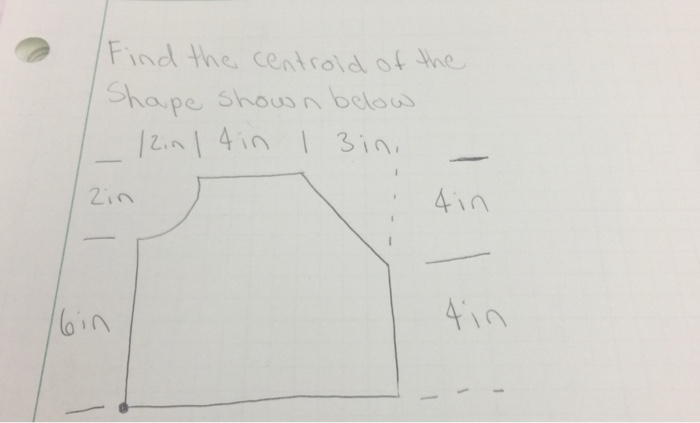 Find the centroid of the
Shape shown below
2in 4in 3in
2in 4in
6in 4in